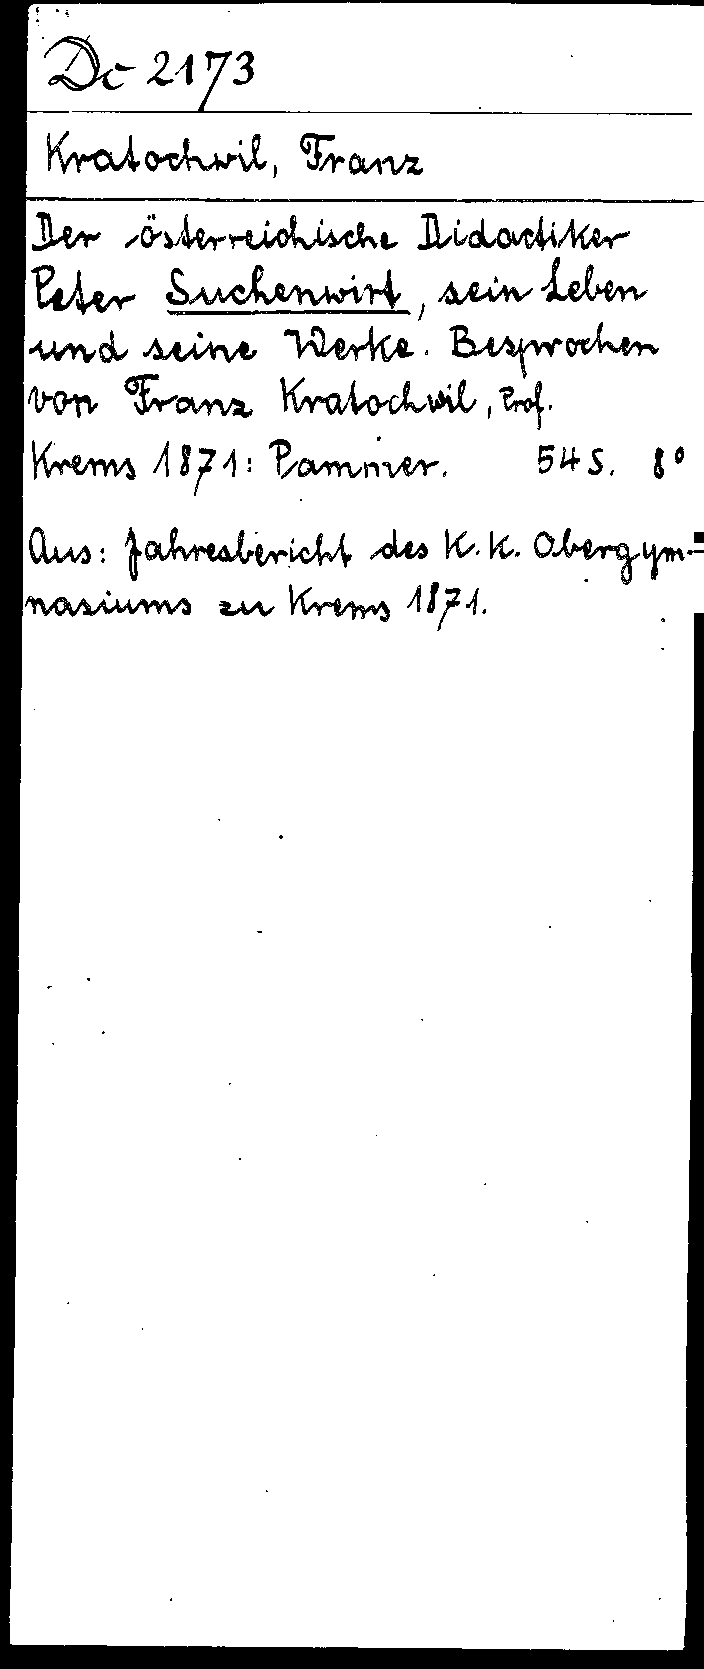 Dc 2173
Kratochwil, Franz
Der österreichische Didactiker
Peter Suchenwirt, sein Leben
und seine Werke. Besprochen
von Franz Kratochwil, Prof.
Krems 1871: Pammer. 54 S. 8°
Aus: Jahresbericht des K. K. Obergym-
nasiums zu Krems 1871.